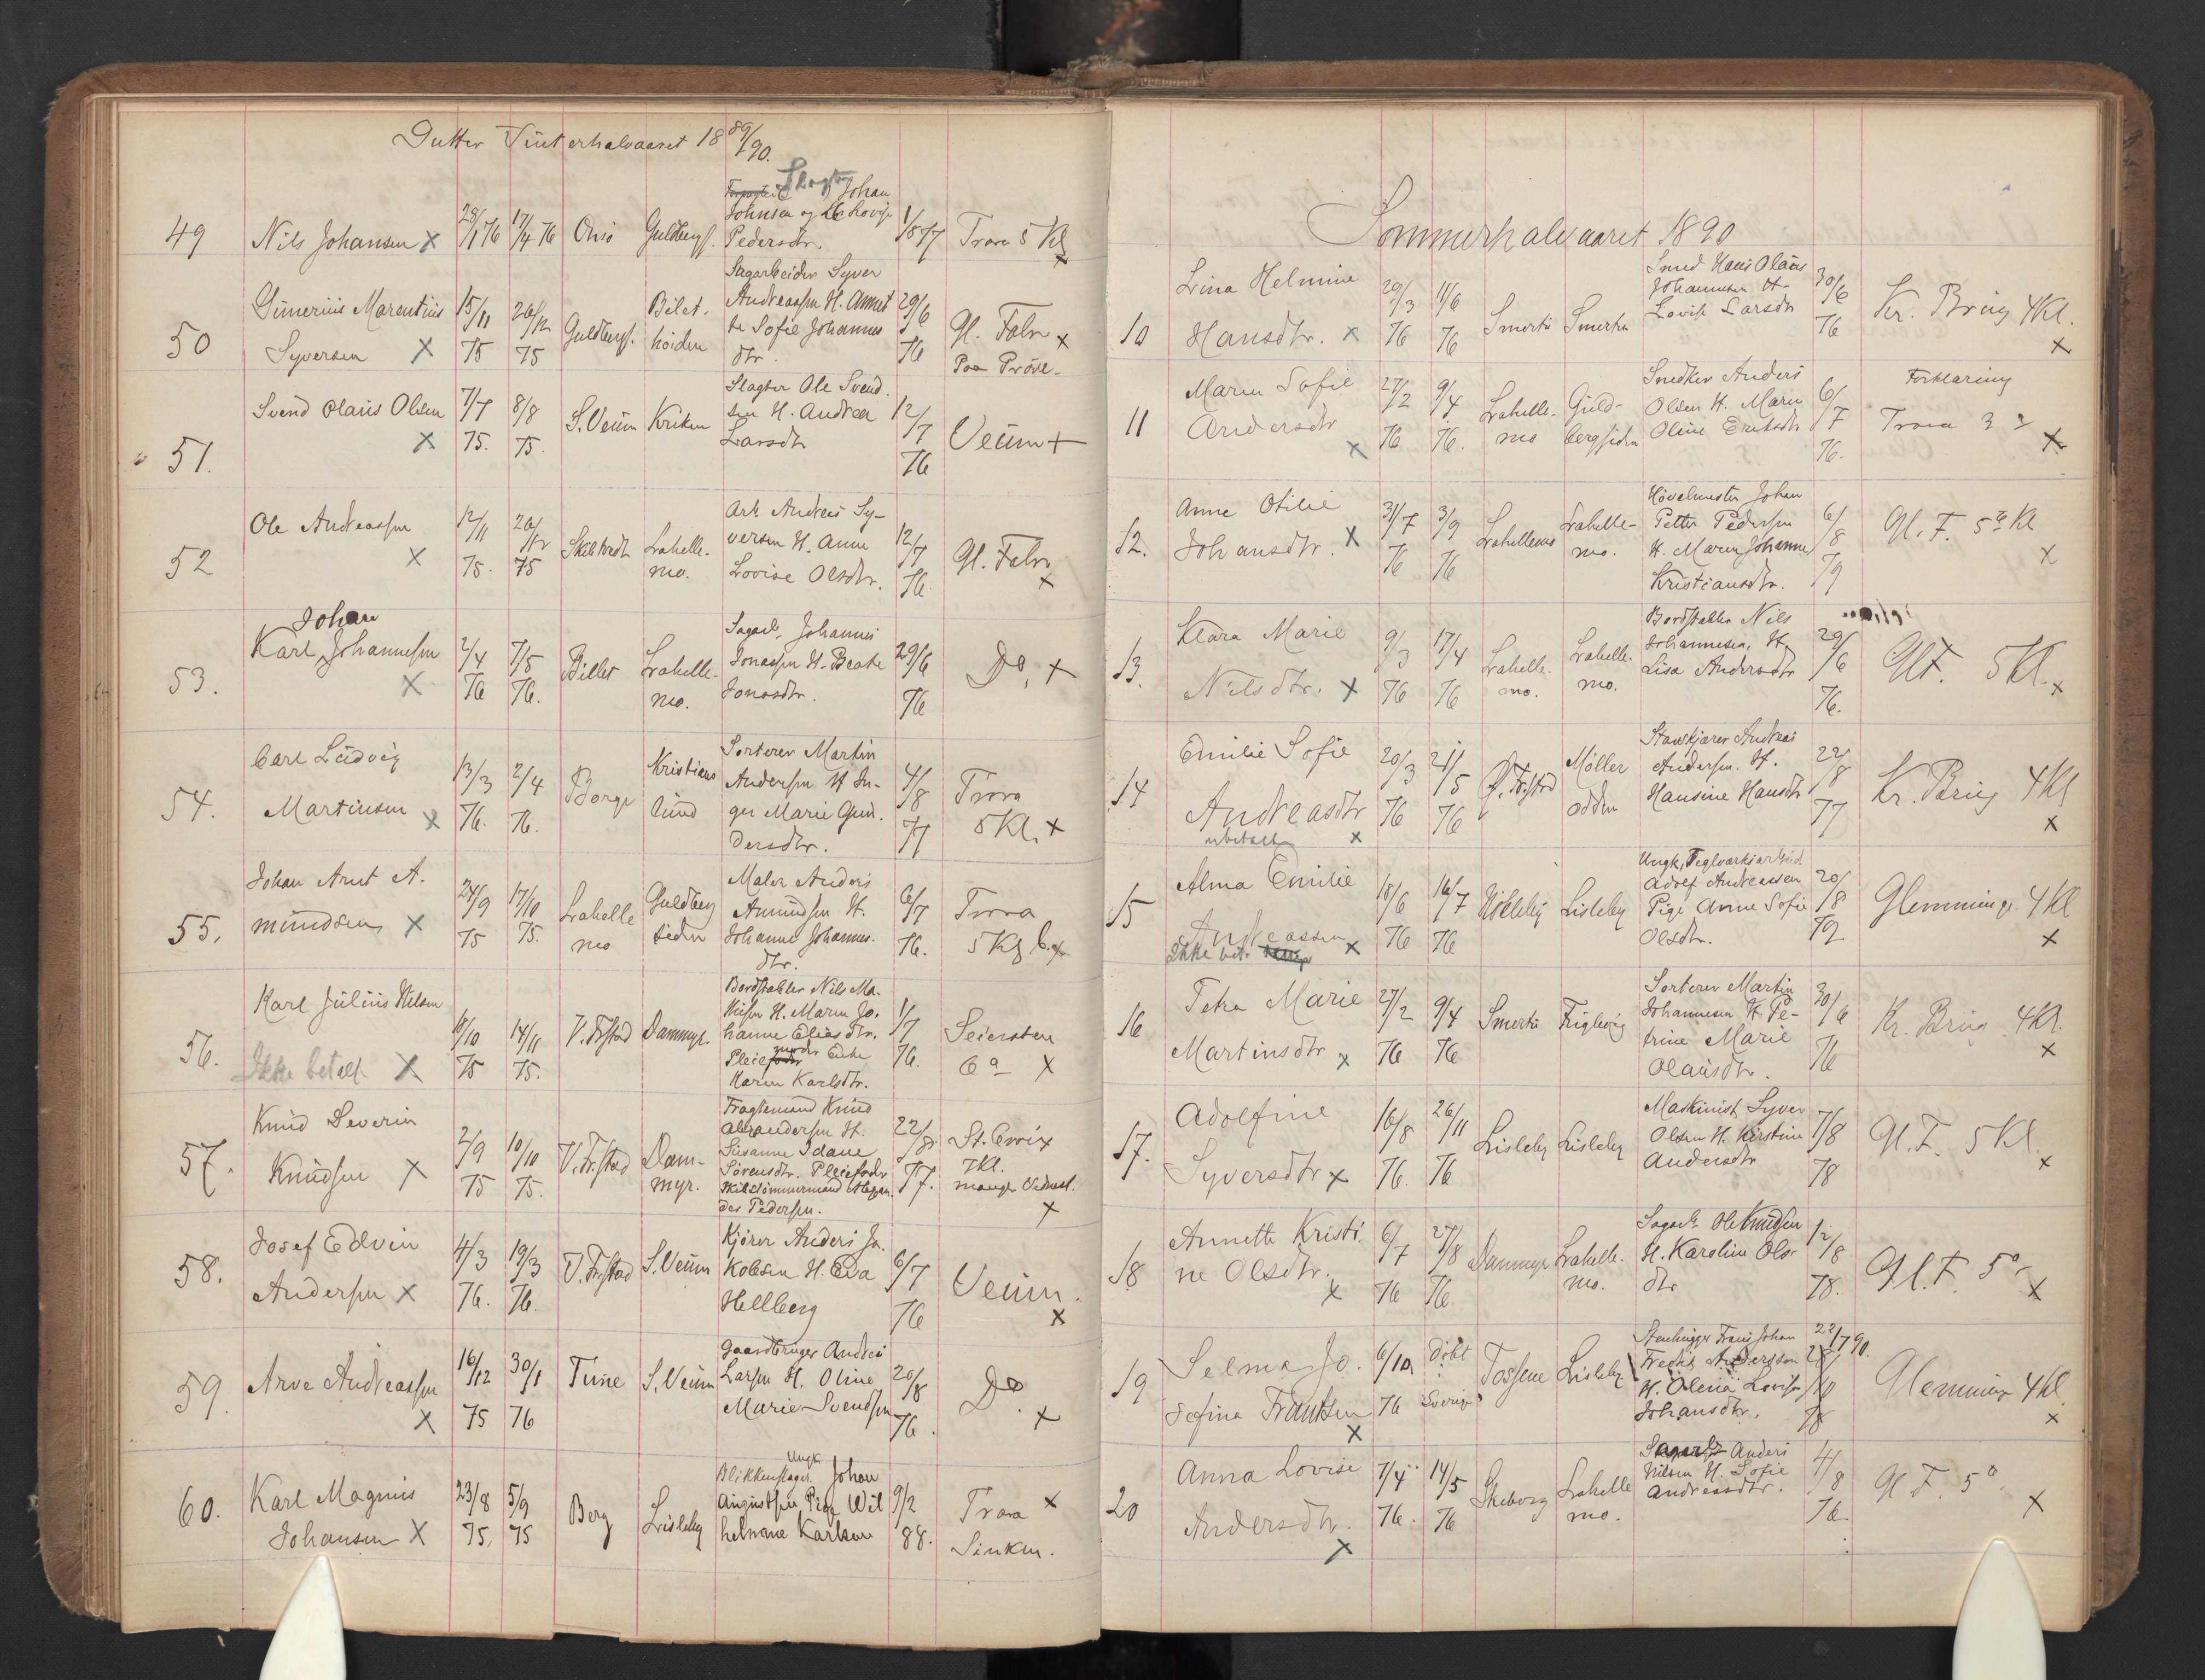 Gutter Vinterhalvaaret 18 89/90.
49 Nils Johansen x 28/1 76 17/4 76 Onsö Guldbergs. Slagter Johan
Johnsen og H. Lovise
Pedersdtr. 1/8 77 Trara 5 Kl x
50 Gunerius Marentius
Syversen x 15/11 75 26/12 75 Guldbergs. Bilet.
höiden Sagarbeider Syver
Andreassen H. Annet
te Sofie Johannes
dtr. 29/6 76 Gl. Fabr x
Paa Pröve.
51. Svend Olaus Olsen
x 7/7 75. 8/8 75. S. Veum Kriken Slagter Ole Svend.
sen H. Andrea
Larsdtr 12/7 76 Veum +
52 Ole Andreassen
x 12/11 75. 26/12 75 Skibtvedt Lahelle-
mo. Arb. Andreas Sy-
versen H. Anne
Lovise Olsdtr. 12/7 76. Gl. Fabr.
x
53. Johan
Karl Johannesen
x 2/4 76 7/5 76. Billet Lahelle-
mo. Sagarb. Johannes
Jonassen H. Beate
Jonasdtr. 29/6 76 Do, x
54. Carl Ludvig
Martinsen x 13/3 76. 2/4 76. Borge Kristians
lund Sorterer Martin
Andersen H. In-
ger Marie Gun.
dersdtr. 4/8 77 Trara
5 Kl. x
55. Johan Arnt A.
mundsen x 24/9 75 17/10 75. Lahelle
mo Guldberg
siden Maler Anders
Amundsen H.
Johanne Johannes.
dtr. 6/7 76. Trara
5 Kl b. x
56. Karl Julius Nilsen
Ikke betalt x 10/10 75 14/11 75. V. Frstad Dammyr. Bordstabler Nils Ma-
thisen H. Maren Jo.
hanne Eliasdtr.
Pleiemoder Enke
Karen Karlsdtr. 1/7 76. Seiersten
6 a x
57. Knud Severin
Knudsen x 2/9 75 10/10 75. V. Frstad Dam-
myr. Fragtemand Knud
Alexandersen H.
Susanne Idane
Sörensdtr. Pleiefader
Skibstömmermand Alexan.
der Pedersen. 22/8 77. St. Croix
7 Kl.
mangler Vidnesb.
x
58. Josef Edvin
Andersen x 4/3 76. 19/3 76. V. Frstad S. Veum Kjörer Anders Ja.
kobsen H. Eva
Hellberg 6/7 76 Veum.
x
59. Arve Andreassen
x 16/12 75 30/1 76 Tune S. Veum Gaardbruger Andrea
Larsen H. Oline
Marie Svendsen 20/8 76. Do.
x
60. Karl Magnus
Johansen x 23/8 75. 5/9 75 Berg Lisleby Ungk.
Blikkenslager. Johan
Augustsen Pige Wil
helmine Karlsen 9/2 88. Trara x
Sinken.
Sommerhalvaaret 1890
10 Lina Helmine
Hansdtr. x 29/3 76 11/6 76 Smertu Smertu Smed Hans Olaus
Johannesen H.
Lovise Larsdtr 30/6 76 Kr. Brug 4 Kl.
x
11 Maren Sofie
Andersdtr
x 27/2 76 9/4 76. Lahelle-
mo Guld-
bergsiden Snedker Anders
Olsen H. Maren
Oline Eriksdtr 6/7 76. Forklaring
Trara 3
x
12. Anne Otilie
Johansdtr. x 31/7 76 3/9 76 Lahellemo Lahelle-
mo. Hövelmester Johan
Petter Pedersen
H. Maren Johanne
Kristiansdtr. 6/8 79 Gl. F. 5 Kl
x
13. Klara Marie
Nilsdtr. x 9/3 76 17/4 76 Lahelle-
mo. Lahelle-
mo. Bordstabler Nils
Johannesen, H.
Lisa Andersdtr 29/6 76. Gl F. 5 Kl.
x
14 Emilie Sofie
Andreasdtr
ubetalt x 20/3 76 21/5 76 Ö. Frstad Möller
odden Stavskjærer Andreas
Andersen. H.
Hansine Hansdtr 22/8 77 Kr. Brug 4 Kl
x
15 Alma Emilie
Andreassen
Ikke bet. x 18/6 76 16/7 76 Lisleby Ungk. Teglværksarbeid
Adolf Andreassen
Pige Anne Sofie
Olsdtr. 20/8 79 Glemminge 4 Kl
x
16 Teka Marie
Martinsdtr x 27/2 76 9/4 76 Smertu Trigleig Sorterer Martin
Johannesen H. Pe-
trine Marie
Olausdtr. 30/6 76 Kr. Brug 4 Kl.
x
17. Adolfine
Syversdtr x 16/8 76. 26/11 76 Lisleby Lisleby Maskinist Syver
Olsen H. Kirstine
Andersdtr 7/8 78 Gl. F. 5 Kl.
x
18. Annette Kristi.
ne Olsdtr.
x 6/7 76 27/8 76 Dammyr Lahelle-
mo. Sagarb. Ole Knudsen
H. Karoline Ols-
dtr 12/8 78. Gl. F. 5
x
19 Selma Jo.
sefina Frantsen
x 6/10 76 döbt
Sverige Tossene Lisleby Stenhugger Frans Johan
Fredrik Andersson
H. Olena Lovisa
Johansdtr. 22/7 90. Glemminge 4 Kl.
x
20 Anna Lovise
Andersdtr.
x 7/4 76. 14/5 76 Skeberg Lahelle
mo. Sagarb. Anders
Nilsen H. Sofie
Andreasdtr. 4/8 76. Gl F. 5
x